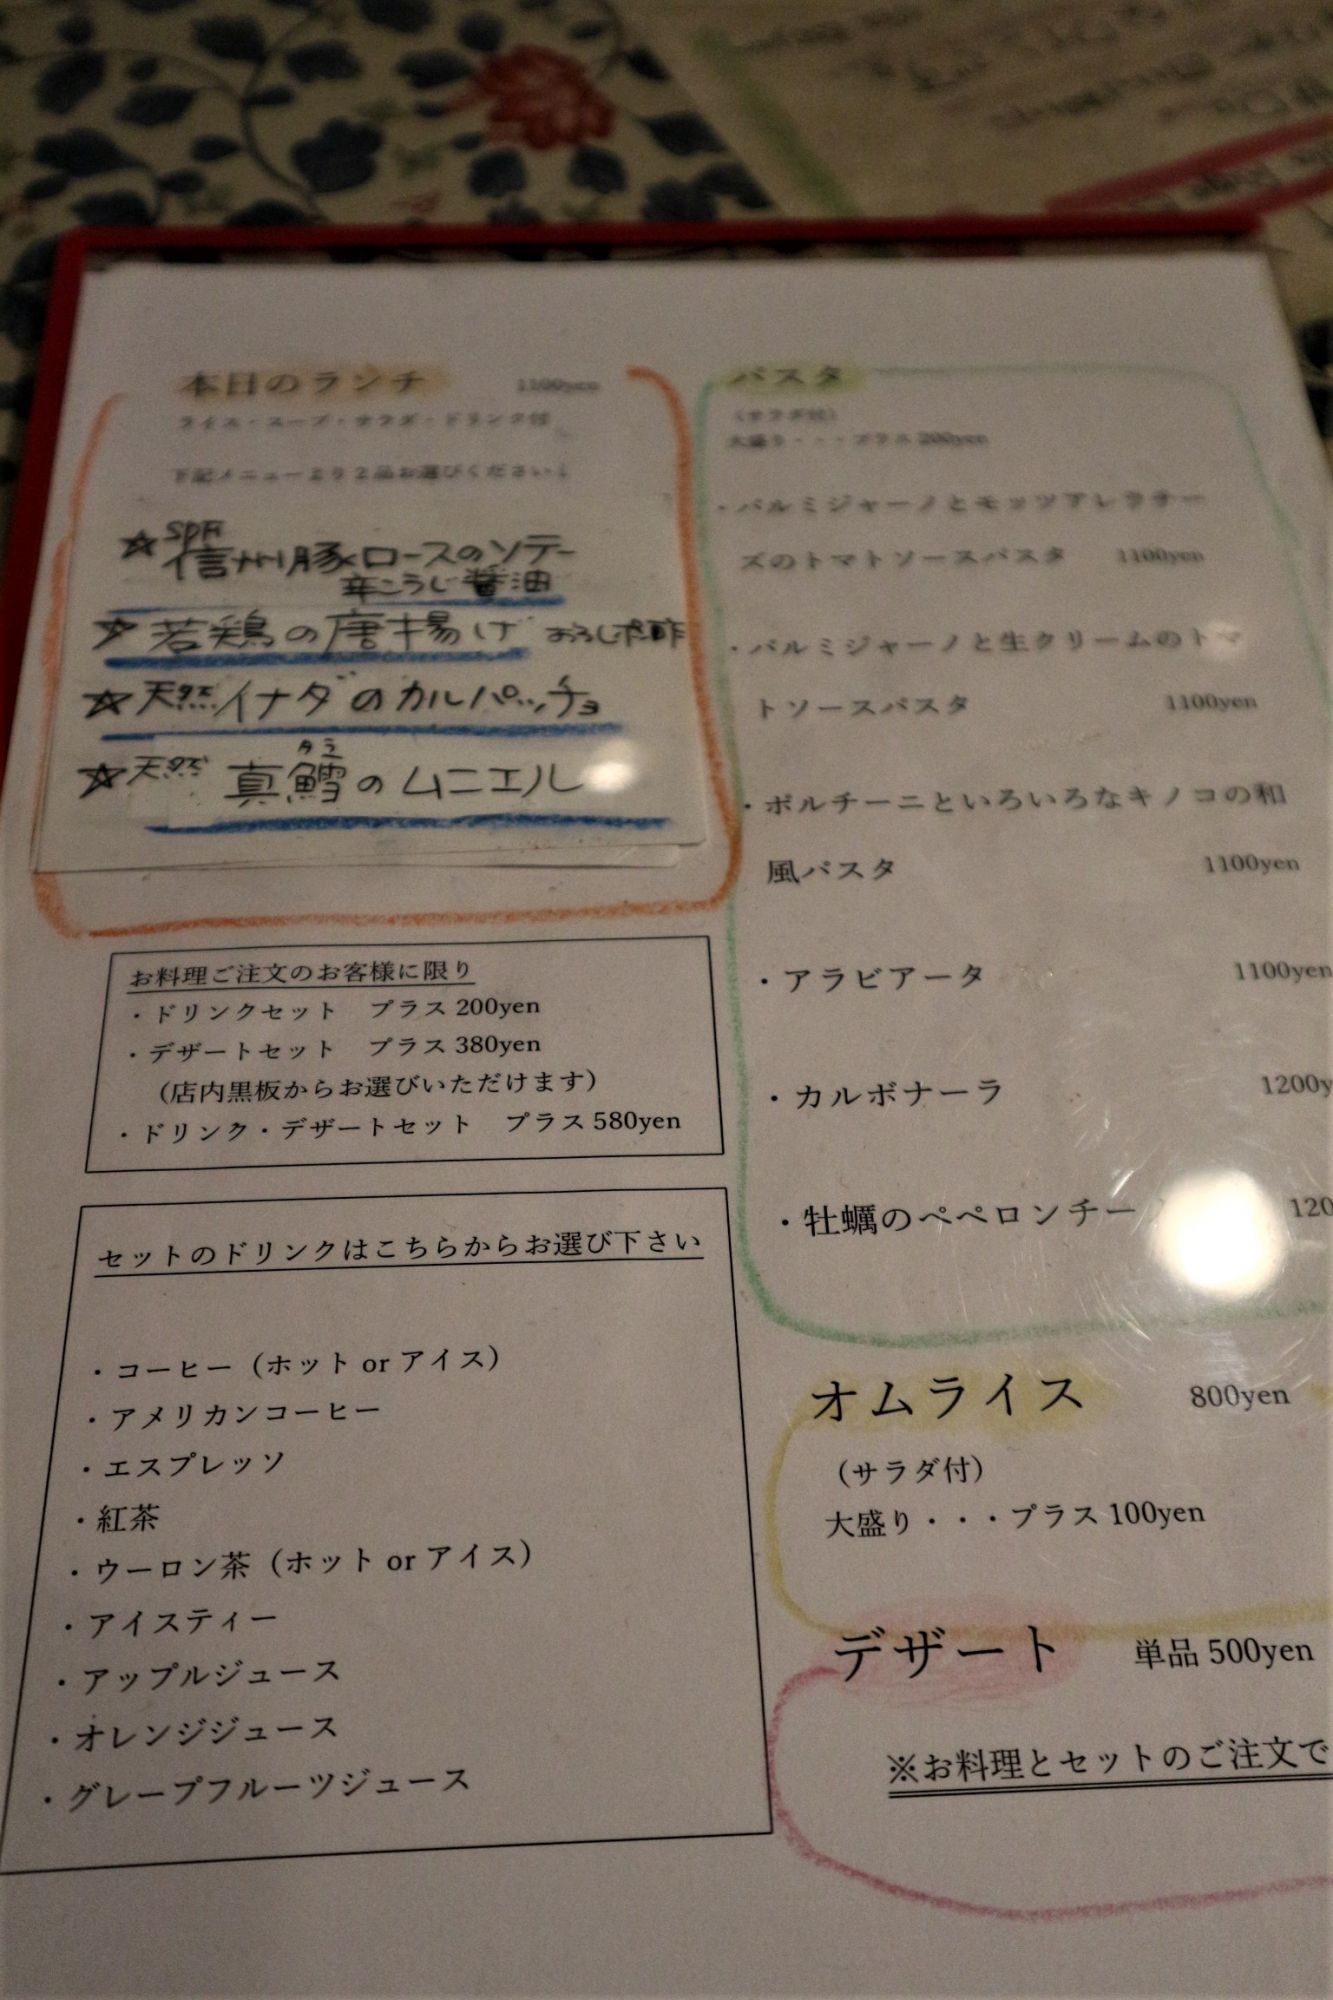 本日のランチ 1100yen
ライス・スープ・サラダ・ドリンク付
下記メニューより2品お選びください!
☆SPF信州豚ロースのソテー
辛こうじ醤油
☆若鶏の唐揚げ おろしポン酢
☆天然イナダのカルパッチョ
☆天然 真鱈のムニエル
タラ
お料理ご注文のお客様に限り
・ドリンクセット プラス 200yen
・デザートセット プラス 380yen
（店内黒板からお選びいただけます）
・ドリンク・デザートセット プラス 580yen
セットのドリンクはこちらからお選び下さい
・コーヒー（ホット or アイス）
・アメリカンコーヒー
・エスプレッソ
・紅茶
・ウーロン茶（ホット or アイス）
・アイスティー
・アップルジュース
・オレンジジュース
・グレープフルーツジュース
パスタ
（サラダ付）
大盛り・・・プラス 200yen
・パルミジャーノとモッツアレラチー
ズのトマトソースパスタ 1100yen
・パルミジャーノと生クリームのトマ
トソースパスタ 1100yen
・ポルチーニといろいろなキノコの和
風パスタ 1100yen
・アラビアータ 1100yen
・カルボナーラ 1200y
・牡蠣のペペロンチー 120
オムライス 800yen
（サラダ付）
大盛り・・・プラス 100yen
デザート 単品 500yen
※お料理とセットのご注文で